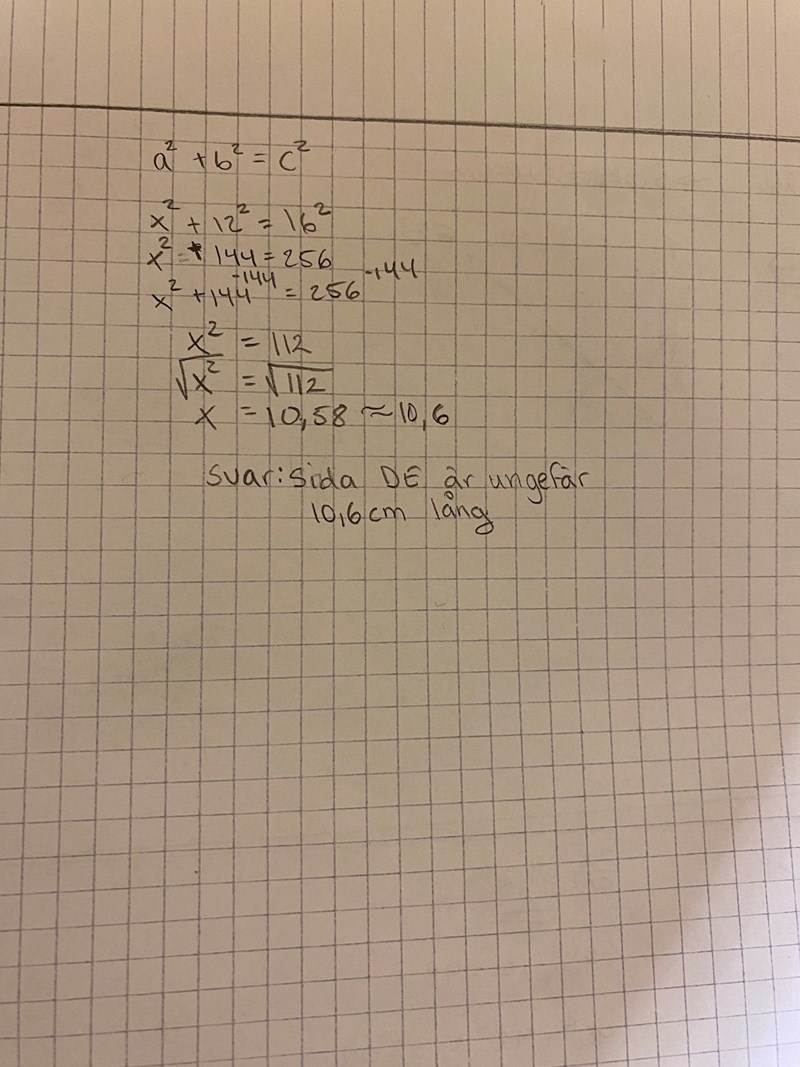 a² + b² = c²
x² + 12² = 16²
x² = + 144 = 256
x² + 144 -144 = 256 -144
x² = 112
√x² = √112
x = 10,58 ≈ 10,6
Svar: Sida DE är ungefär
10,6 cm lång